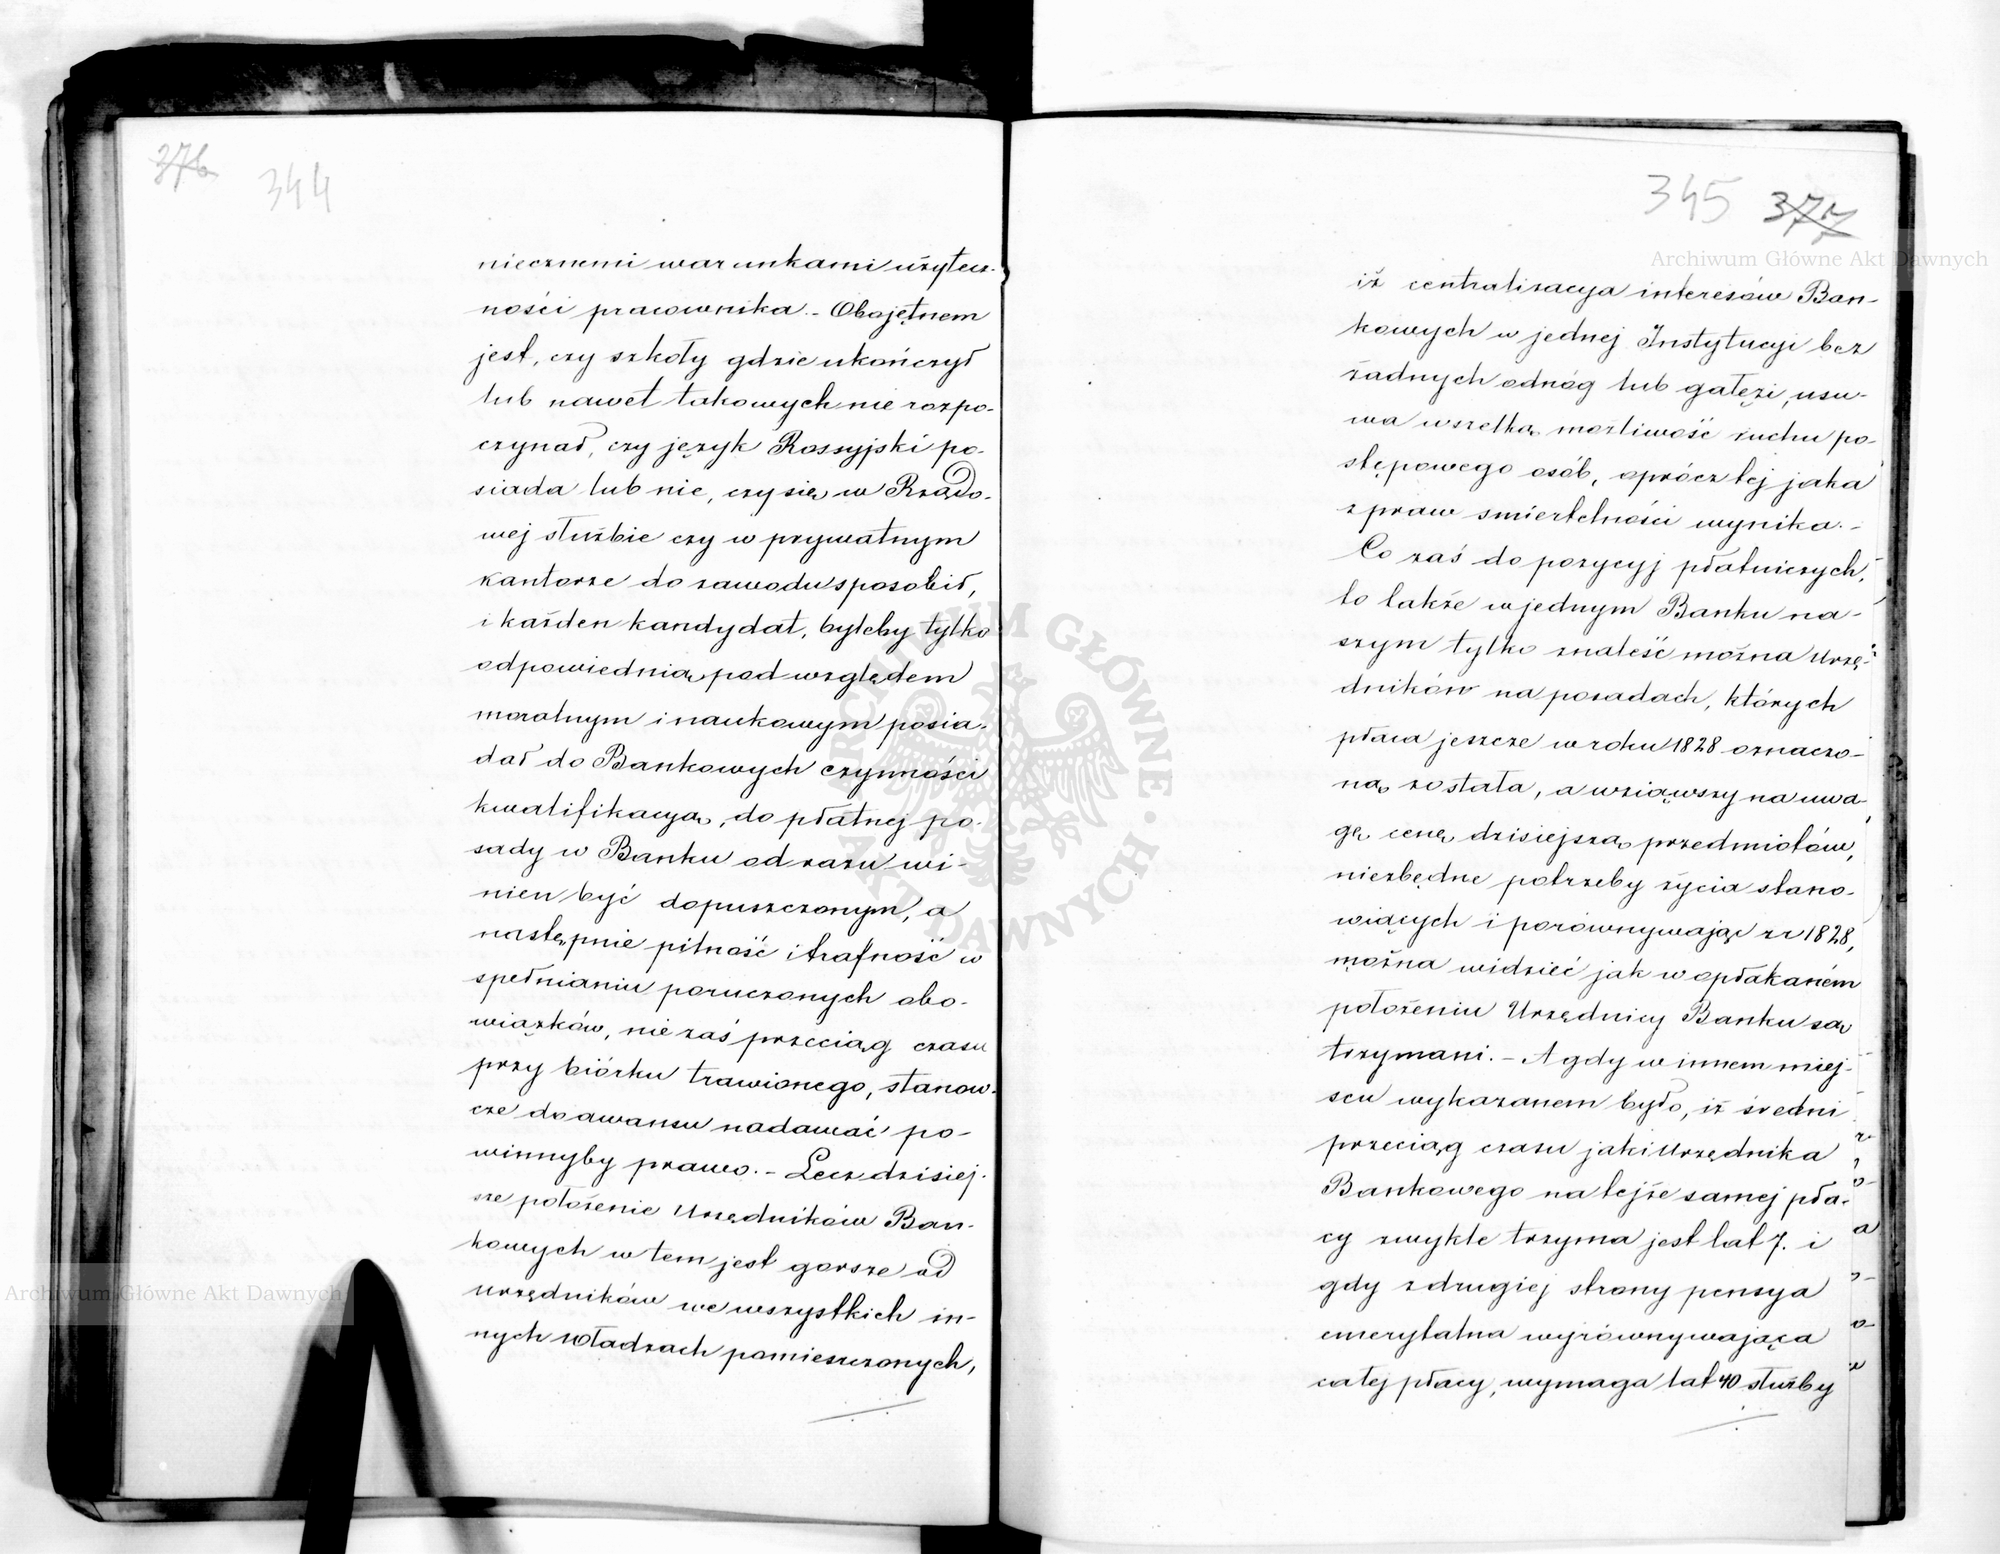 376
344
niecznemi warunkami użytecz-
ności pracownika. - Obojętnem
jest, czy szkoły gdzie ukończył
lub nawet takowych nie rozpo-
czynał, czy język Rossyjski po-
siada lub nie, czy się w Rządo-
wej służbie czy w prywatnym
kantorze do zawodu sposobił,
i każden kandydat, byleby tylko
odpowiednią pod względem
moralnym i naukowym posia-
dał do Bankowych czynności
kwalifikacyą, do płatnej po-
sady w Banku od razu wi-
nien być dopuszczonym, a
następnie pilność i trafność w
spełnianiu poruczonych obo-
wiązków, nie zaś przeciąg czasu
przy biórku trawionego, stanow-
cze do awansu nadawać po-
winnyby prawo. - Lecz dzisiej-
sze położenie Urzędników Ban-
kowych w tem jest gorsze od
urzędników we wszystkich in-
nych władzach pomieszczonych,
345 377
iż centralizacya interesów Ban-
kowych w jednej Instytucyi bez
żadnych odnóg lub gałęzi, usu-
wa wszelką możliwość ruchu po-
stępowego osób, oprócz tej jaka
z praw śmiertelności wynika. -
Co zaś do pozycyj płatniczych,
to także w jednym Banku na-
szym tylko znaleść można Urzę-
dników na posadach, których
płaca jeszcze w roku 1828 oznaczo-
ną została, a wziąwszy na uwa-
gę cenę dzisiejszą przedmiotów,
niezbędne potrzeby życia stano-
wiących i porównywając z r 1828,
można widzieć jak w opłakaném
położeniu Urzędnicy Banku są
trzymani. - A gdy w innem miej-
scu wykazanem było, iż średni
przeciąg czasu jaki Urzędnika
Bankowego na tejże samej pła-
cy zwykle trzyma jest lat 7. i
gdy z drugiej strony pensya
emerytalna wyrównywająca
całej płacy, wymaga lat 40 służby
Archiwum Główne Akt Dawnych
Archiwum Główne Akt Dawnych
ARCHIWUM GŁÓWNE AKT DAWNYCH